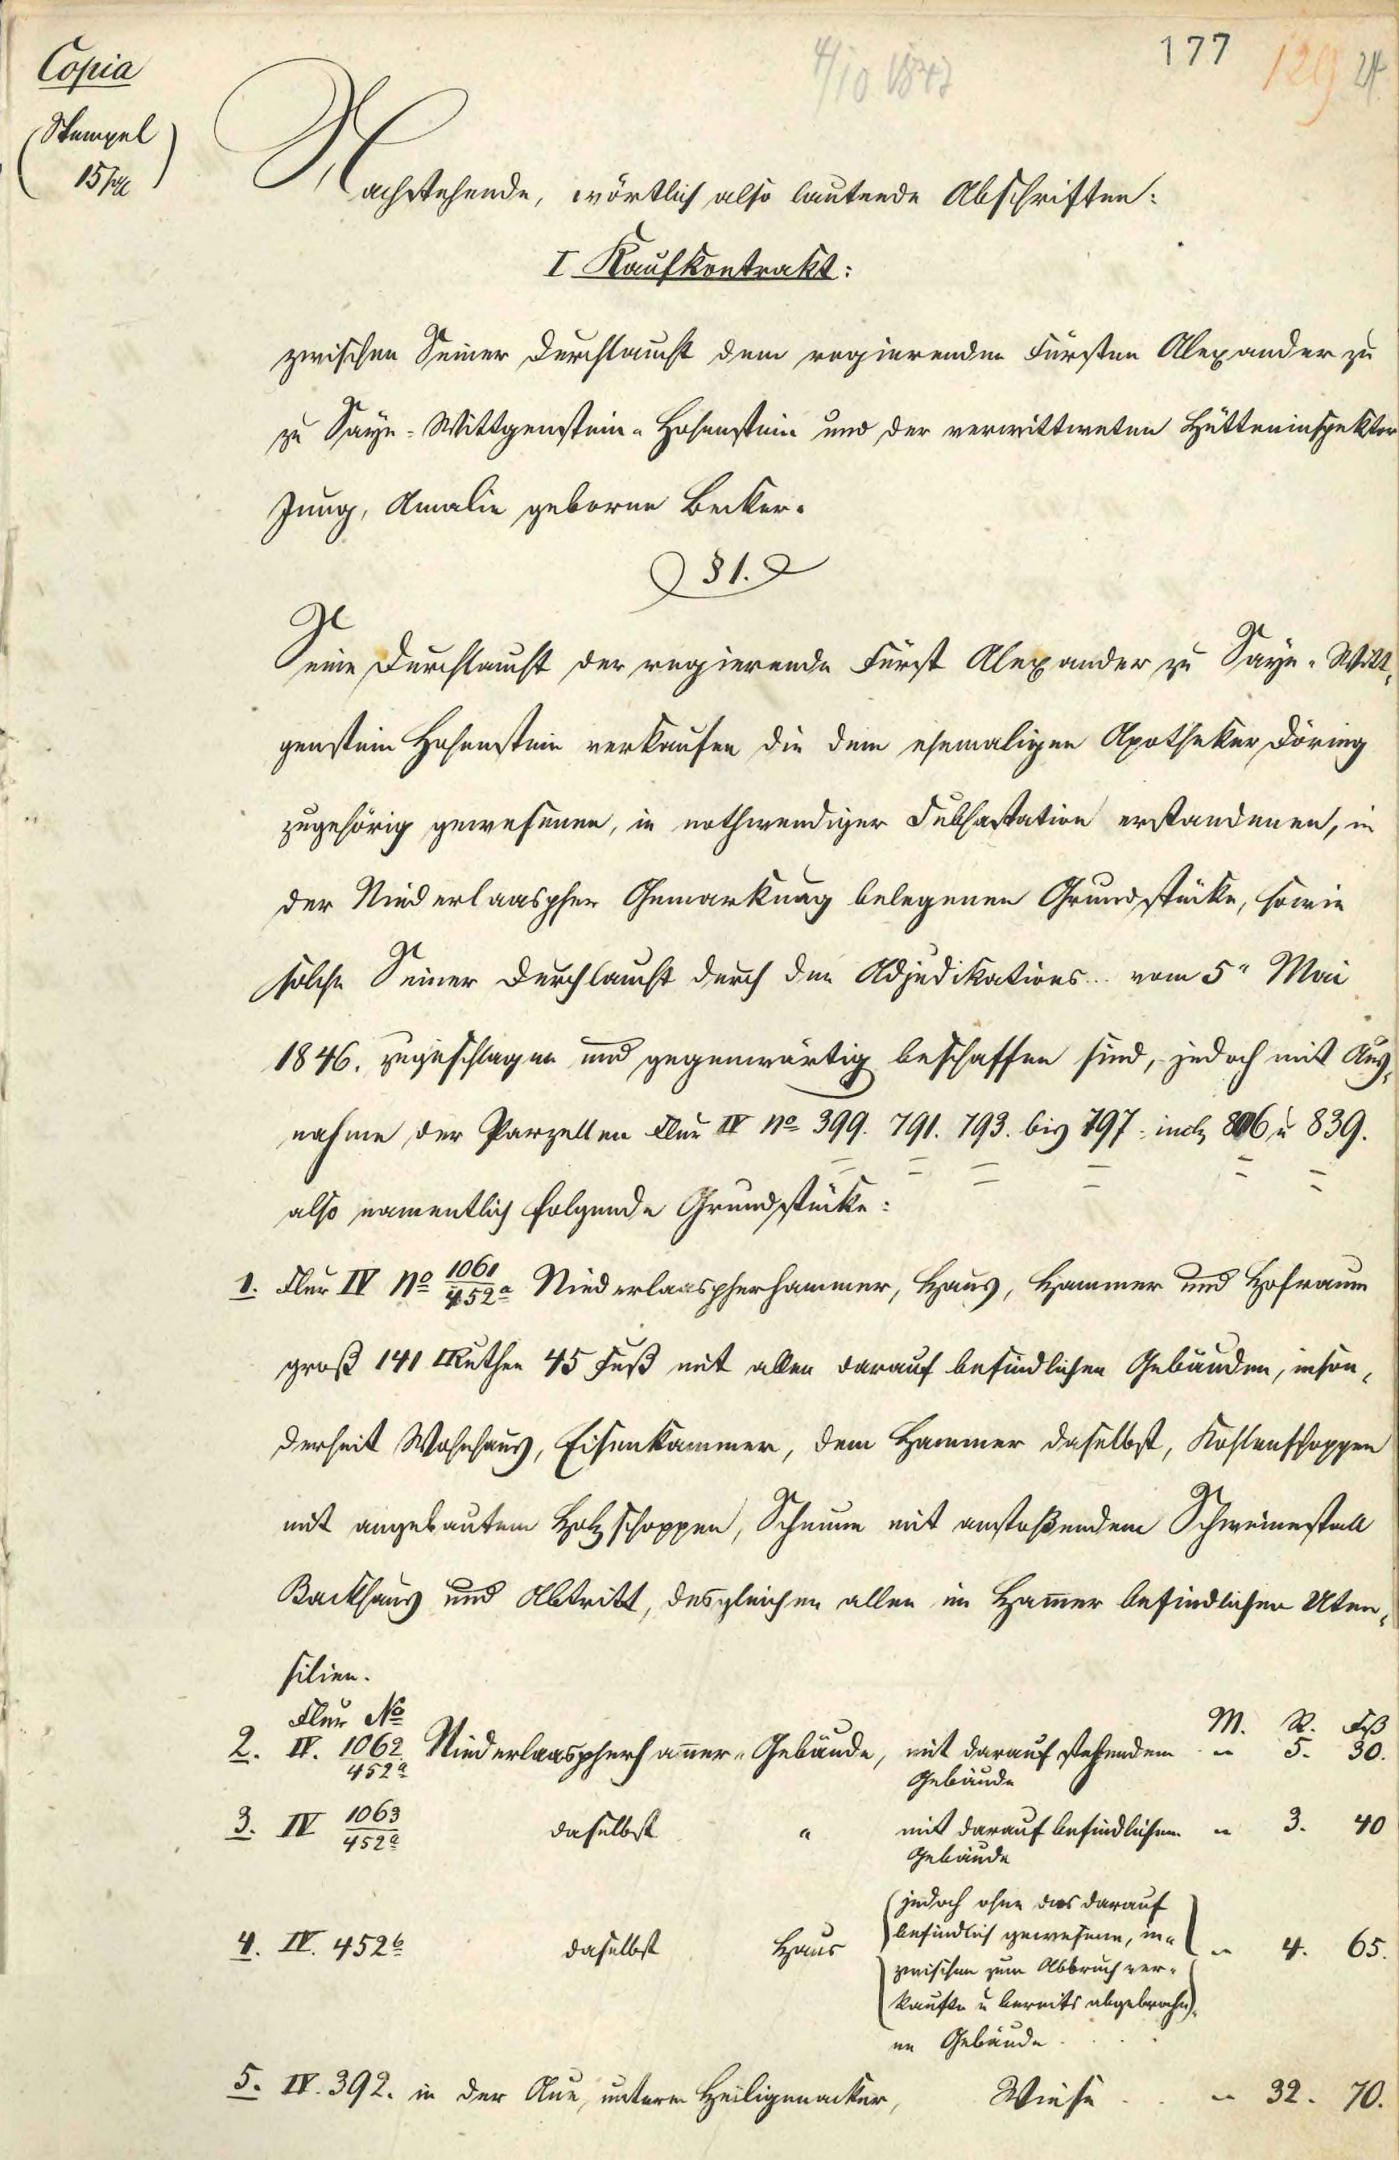 177 129 24
4/10 1847
Copia
(Stempel
15 Sgr)
Nachstehende, wörtlich also lautende Abschriften:
I Kaufkontrakt:
zwischen Seiner Durchlaucht dem regierenden Fürsten Alexander zu
zu Sayn-Wittgenstein-Hohenstein und der verwittweten Hütteninspektor
Jung, Amalie geborne Becker.
§ 1.
Seine Durchlaucht der regierende Fürst Alexander zu Sayn-Witt,
genstein Hohenstein verkaufen die dem ehemaligen Apotheker Döring
zugehörig gewesenen, in nothwendiger Subhastation erstandenen, in
der Niederlaaspher Gemarkung belegenen Grundstücke, sowie
solche Seiner Durchlaucht durch den Adjudikations... vom 5" Mai
1846. zugeschlagen und gegenwärtig beschaffen sind, jedoch mit Aus,
nahme der Parzellen Flur IV No 399. 791. 793. bis 797. incl. 806 u 839.
also namentlich folgende Grundstücke:
1. Flur IV No 1061/452a Niederlaaspherhammer, Haus, Hammer und Hofraum
groß 141 □Ruthen 45 Fuß mit allen darauf befindlichen Gebäuden, inson,
derheit Wohnhaus, Eisenkammer, dem Hammer daselbst, Kohlenschoppen
mit angebautem Holzschoppen, Scheune mit anstoßendem Schweinestall
Backhaus und Abtritt, desgleichen allen im Hamer befindlichen Uten,
silien.
Flur No M. R. Fß
2. IV. 1062/452a Niederlaaspherhamer- Gebäude, mit darauf stehendem " 5. 30.
Gebäude
3. IV 1063/452a daselbst " mit darauf befindlichem " 3. 40
Gebäude
4. IV. 452b daselbst Haus (jedoch ohne das darauf
befindlich gewesene, in- " 4. 65.
zwischen zum Abbruch ver-
kaufte u bereits abgebroche),
ne Gebäude . . .
5. IV. 392. in der Aue, unterm Heiligenacker, Wiese . . " 32. 70.